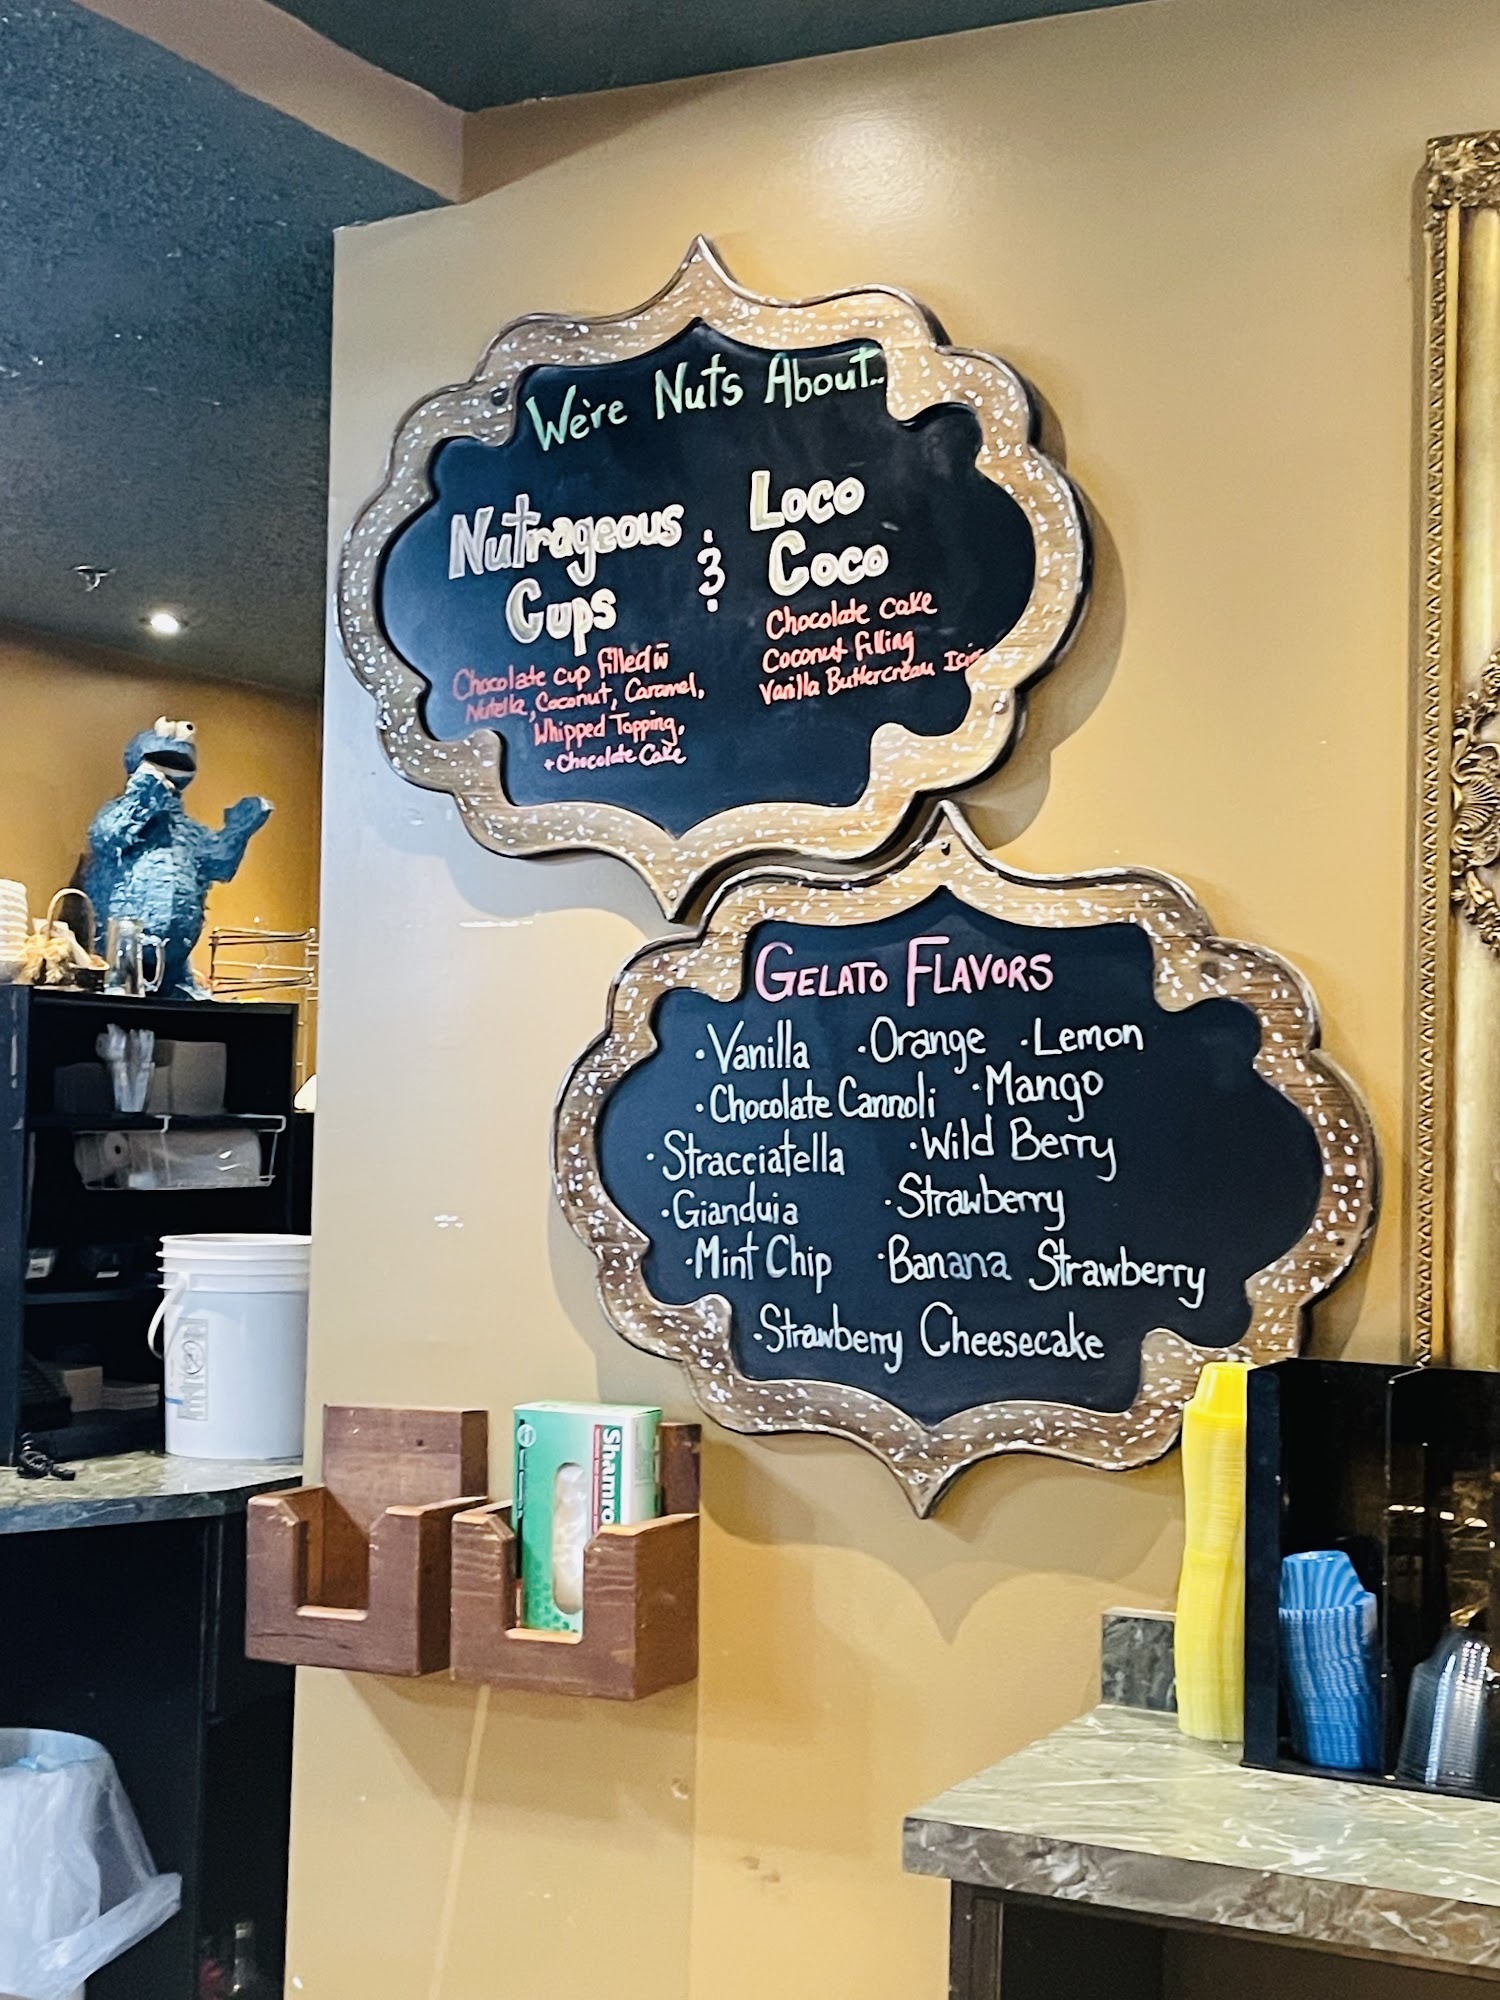 We're Nuts About..
Nutrageous
Cups
Chocolate cup filled w
Nutella, Coconut, Caramel,
Whipped Topping,
+ Chocolate Cake
&
Loco
Coco
Chocolate cake
Coconut filling
Vanilla Buttercream Icing
GELATO FLAVORS
• Vanilla • Orange • Lemon
• Chocolate Cannoli • Mango
• Stracciatella • Wild Berry
• Gianduia • Strawberry
• Mint Chip • Banana Strawberry
• Strawberry Cheesecake
Shamro